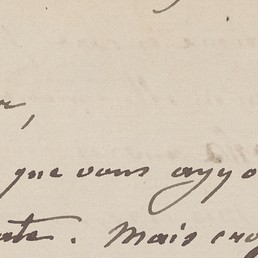 r,
que vous ayyo
ate. Mais croy